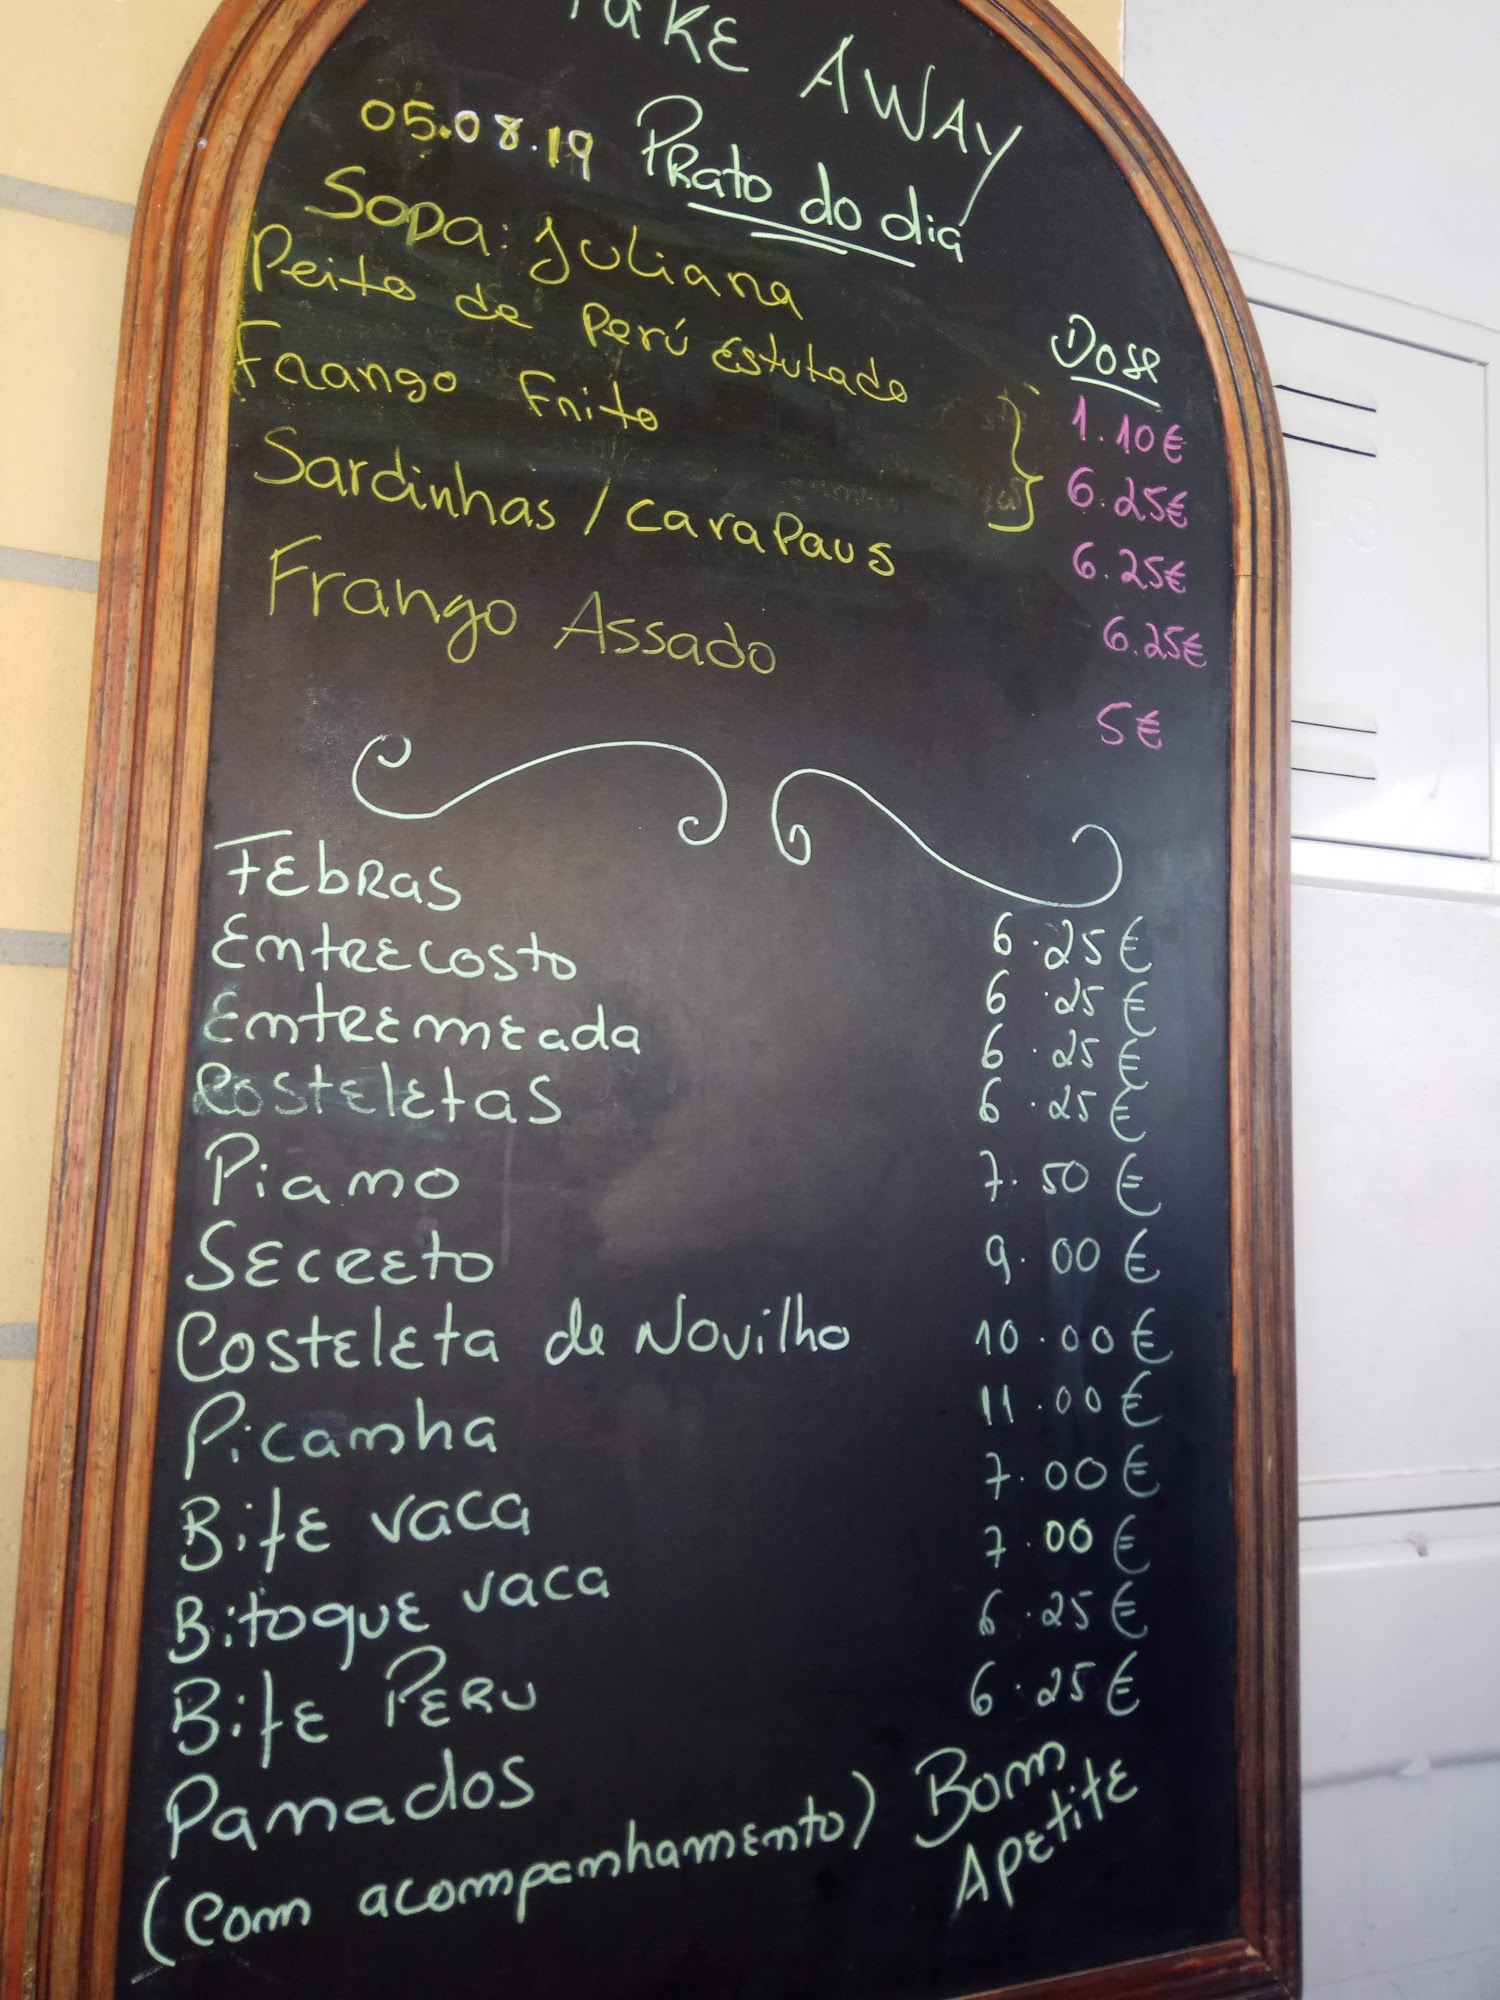 TAKE AWAY
05.08.19 Prato do dia
Sopa: Juliana
Dose
Peito de Perú Estutado
1.10€
Frango Frito
6.25€
Sardinhas / Carapaus
6.25€
Frango Assado
6.25€
5€
Febras
6.25€
Entrecosto
6.25€
Entremeada
6.25€
Costeletas
6.25€
Piano
7.50€
Secreto
9.00€
Costeleta de Novilho
10.00€
Picanha
11.00€
Bife vaca
7.00€
Bitoque vaca
7.00€
Bife Peru
6.25€
Panados
6.25€
(com acompanhamento) Bom
Apetite